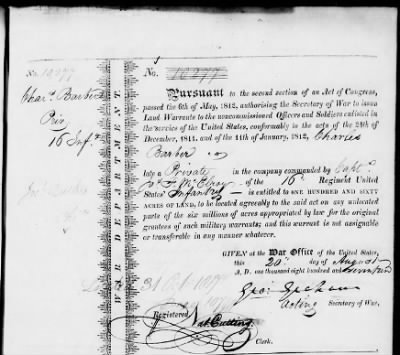 No. 10277
Chas. Barber
Priv
16 Infy.
WAR DEPARTMENT.
No. 10277
Pursuant to the second section of an Act of Congress,
passed the 6th of May, 1812, authorising the Secretary of War to issue
Land Warrants to the noncommissioned Officers and Soldiers enlisted in
the service of the United States, conformably to the acts of the 24th
December, 1811, and the 11th of January, 1812, Charles
Barber
late a Private in the company commanded by Capt.
of the 16th Regiment United
States' Infantry is entitled to ONE HUNDRED AND SIXTY
ACRES OF LAND, to be located agreeably to the said act on any unlocated
parts of the six millions of acres appropriated by law for the original
grantees of such military warrants; and this warrant is not assignable
or transferable in any manner whatever.
GIVEN at the War Office of the United States,
this 20th day of August
A. D. one thousand eight hundred and seventeen
Geo: Graham
acting Secretary of War,
Registered Nat Cutting
Clerk.